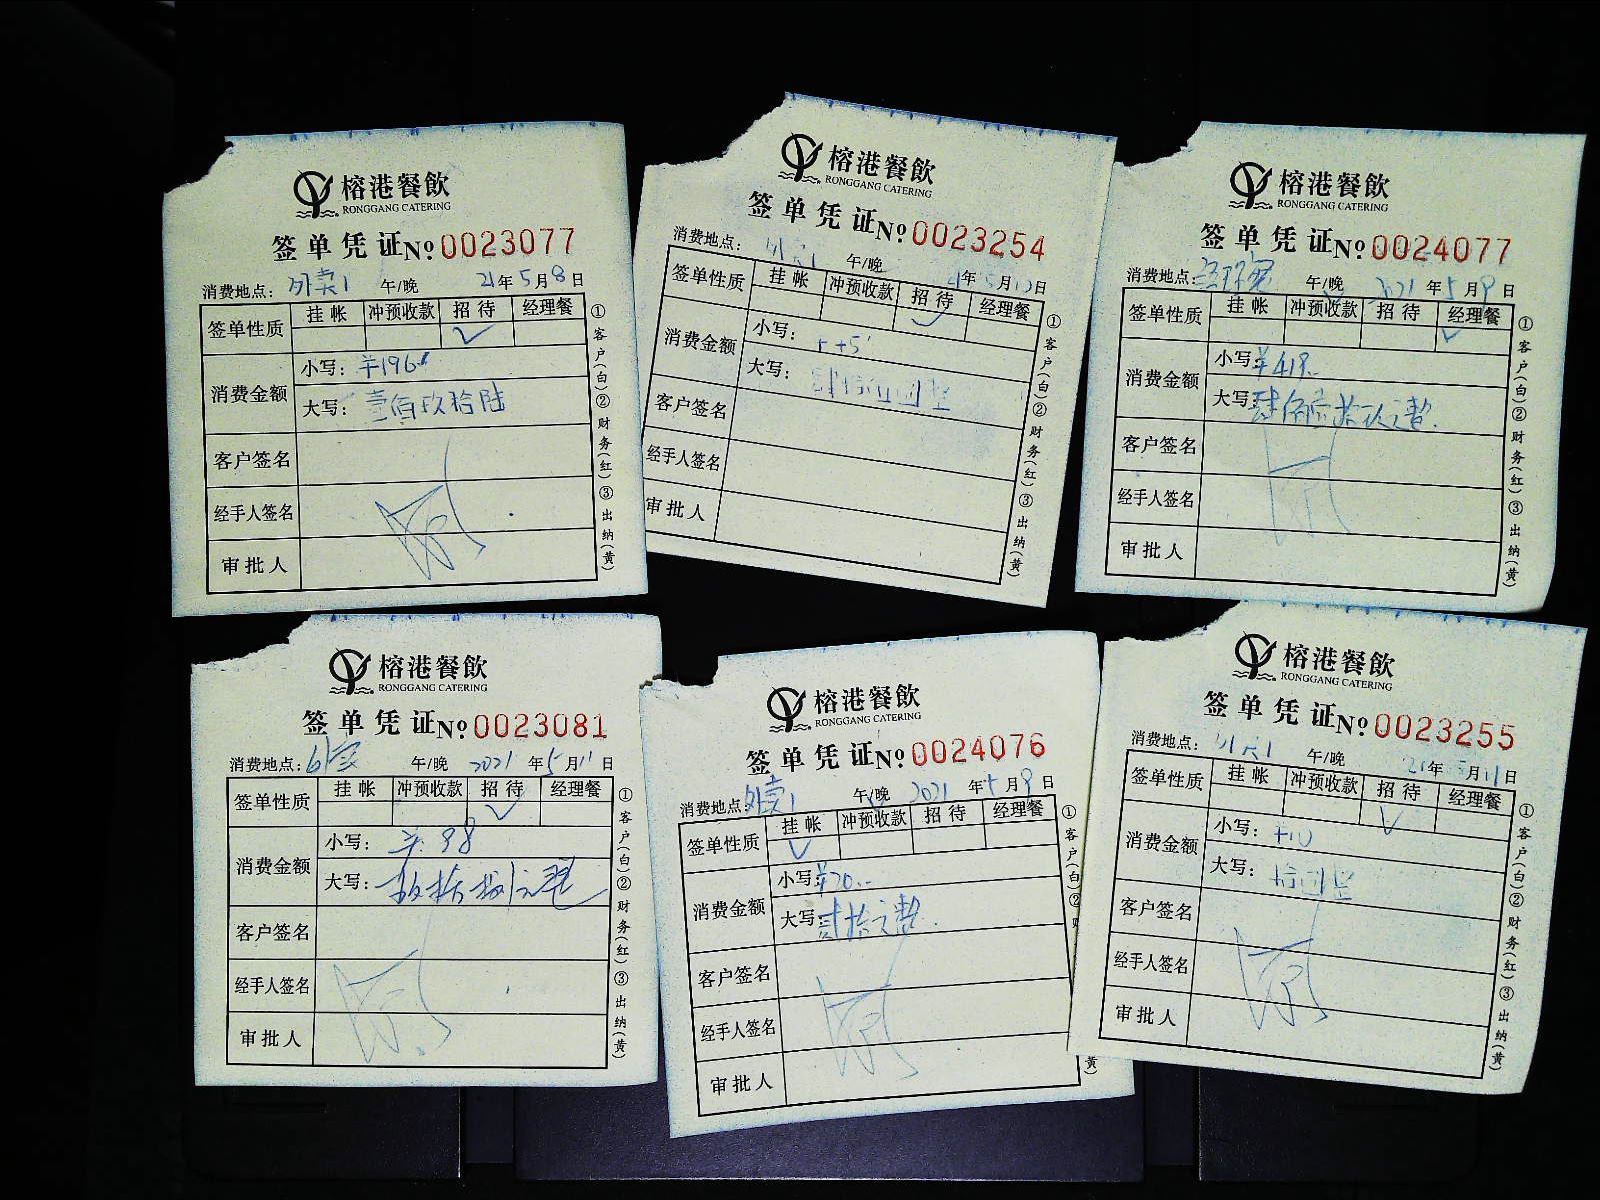 榕港餐飲
RONGGANG CATERING
签单凭证 No 0023077
消费地点：外卖1 午/晚 21年5月8日
签单性质 挂帐 冲预收款 招待 经理餐
✓
消费金额 小写：￥196
大写：壹佰玖拾陆
客户签名
经手人签名
审批人
①客户(白)②财务(红)③出纳(黄)
榕港餐飲
RONGGANG CATERING
签单凭证 No 0023254
消费地点： 午/晚 21年5月 日
签单性质 挂帐 冲预收款 招待 经理餐
✓
消费金额 小写：
大写：
客户签名
经手人签名
审批人
①客户(白)②财务(红)③出纳(黄)
榕港餐飲
RONGGANG CATERING
签单凭证 No 0024077
消费地点： 午/晚 2021年5月9日
签单性质 挂帐 冲预收款 招待 经理餐
✓
消费金额 小写：￥419
大写：肆佰壹拾玖元整
客户签名
经手人签名
审批人
①客户(白)②财务(红)③出纳(黄)
榕港餐飲
RONGGANG CATERING
签单凭证 No 0023081
消费地点： 午/晚 2021年5月11日
签单性质 挂帐 冲预收款 招待 经理餐
✓
消费金额 小写：￥98
大写：玖拾捌元整
客户签名
经手人签名
审批人
①客户(白)②财务(红)③出纳(黄)
榕港餐飲
RONGGANG CATERING
签单凭证 No 0024076
消费地点：外卖1 午/晚 2021年5月9日
签单性质 挂帐 冲预收款 招待 经理餐
✓
消费金额 小写：￥20
大写：贰拾元整
客户签名
经手人签名
审批人
①客户(白)②财
黄)
榕港餐飲
RONGGANG CATERING
签单凭证 No 0023255
消费地点：外卖1 午/晚 21年5月11日
签单性质 挂帐 冲预收款 招待 经理餐
✓
消费金额 小写：
大写：
客户签名
经手人签名
审批人
①客户(白)②财务(红)③出纳(黄)